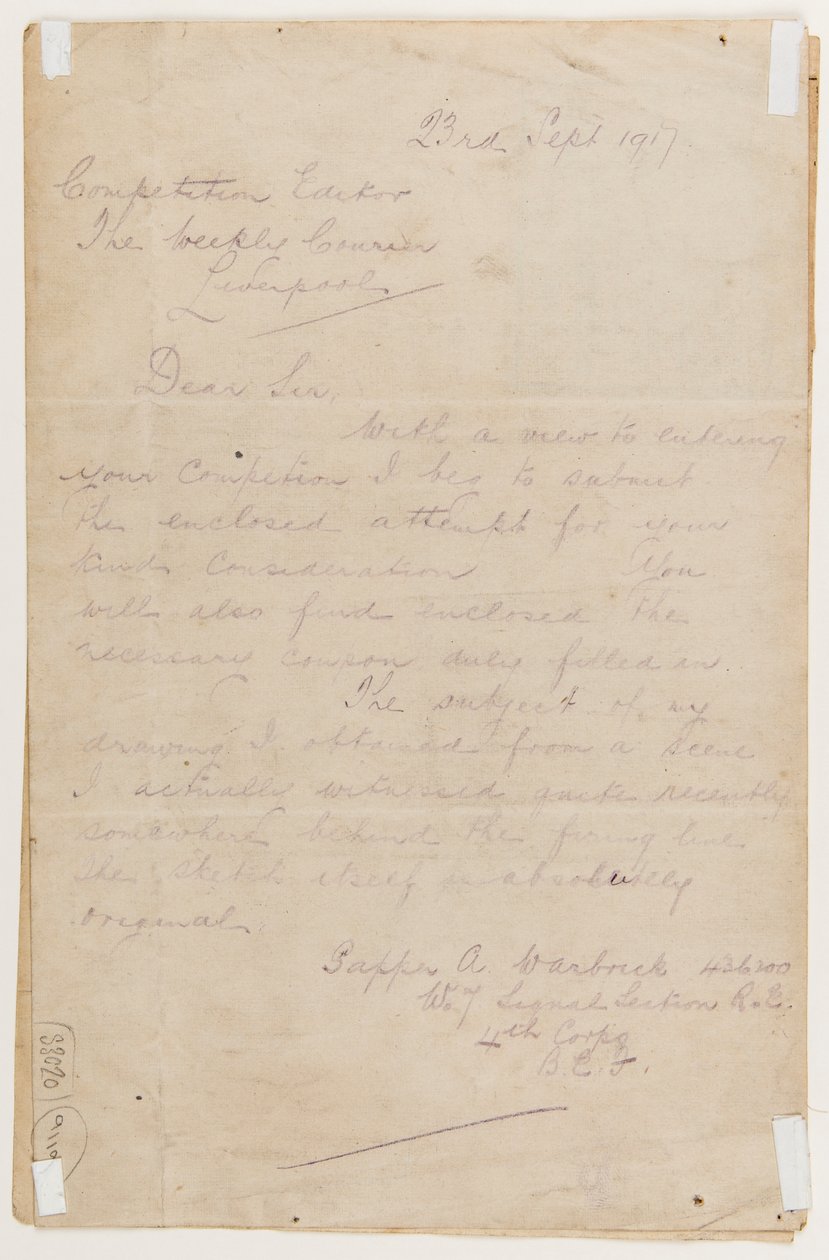 23rd Sept 1917.
Competition Editor
The Weekly Courier
Liverpool
Dear Sir,
With a view to entering
your Competion I beg to submit
the enclosed attempt for your
kind Consideration You
will also find enclosed the
necessary coupon duly filled in.
The subject of my
drawing I obtained from a scene
I actually witnessed quite recently
somewhere behind the firing line
The sketch itself is absolutely
original.
Sapper A. Warbrick 436300
No 7 Signal Section R.E.
4th Corps
B.E.F.
88020